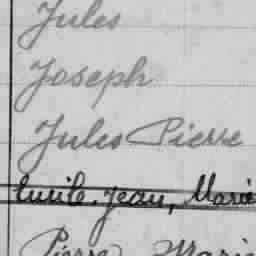 Jules
Joseph
Jules Pierre
Emile, Jean, Marie
Pierre Marie